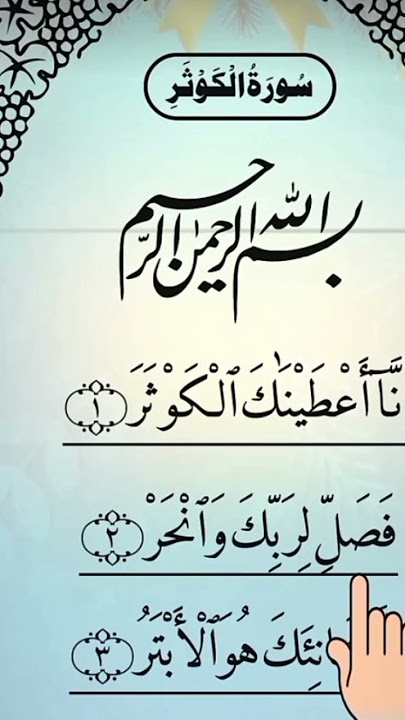 سُورَةُ الْكَوْثَرِ
بسم الله الرحمن الرحيم
نَّآ أَعْطَيْنَٰكَ ٱلْكَوْثَرَ ١
فَصَلِّ لِرَبِّكَ وَٱنْحَرْ ٢
نِئَكَ هُوَ ٱلْأَبْتَرُ ٣